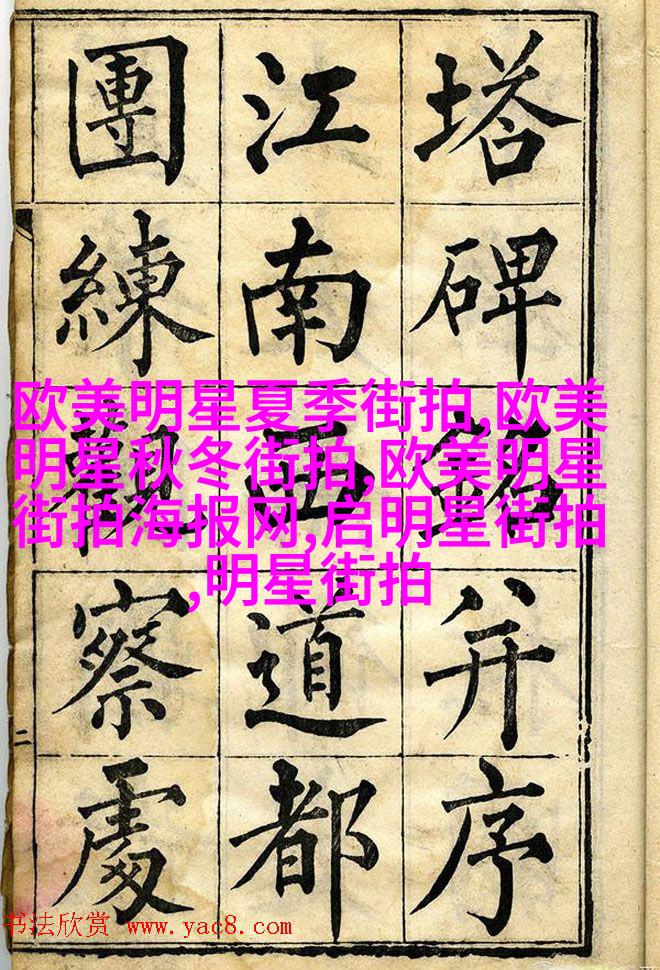 塔碑銘并序
江南西道都
團練觀察處
二
欧美明星夏季街拍,欧美
明星秋冬街拍,欧美明星
街拍海报网,启明星街拍
,明星街拍
书法欣赏 www.yac8.com